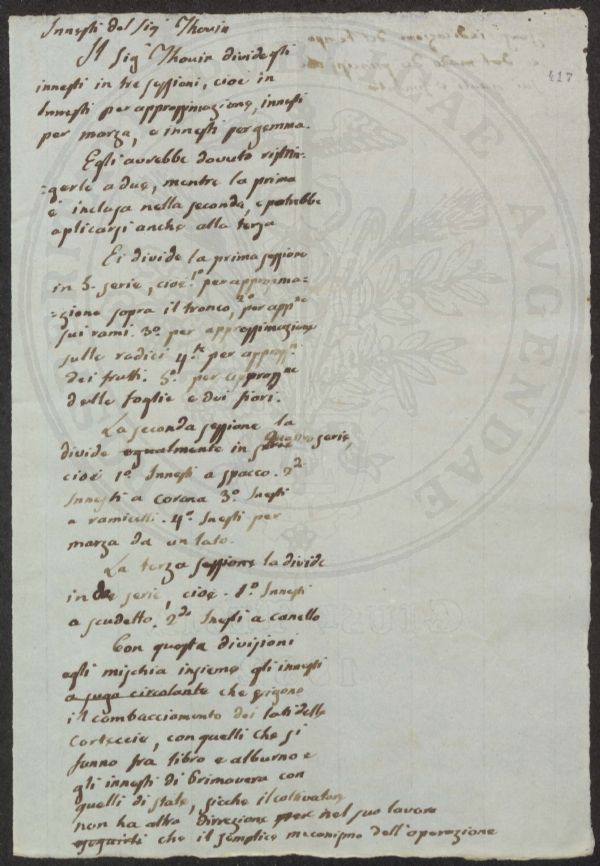 Innesti del Sig.r Thouin
Il Sig.r Thouin divide gli
innesti in tre sessioni, cioè in
Innesti per approssimazione, innesti
per marza, e innesti per gemma.
417
Egli avrebbe dovuto restrin-
-gerle a due, mentre la prima
è inclusa nella seconda, e potrebbe
aplicarsi anche alla terza
Ei divide la prima sessione
in 5. serie, cioè 1.o per approssima-
-zione sopra il tronco, 2.o per app.ne
sui rami. 3.o per approssimazione
sulle radici 4.ta per appross.n
dei frutti. 5.o per appross.ne
delle foglie e dei fiori.
La seconda sessione la
divide egualmente in quattro serie,
cioè 1.o Innesti a spacco. 2.o
Innesti a corona 3.o Inesti
a ramicelli. 4.o Inesti per
marza da un lato.
La terza sessione la divide
in due serie, cioè. 1.o Innesti
a scudetto. 2.do Inesti a canello
Con questa divisioni
egli mischia insieme gli innesti
a suga circolante che esigono
il combacciamento dei lati delle
corteccie, con quelli che si
fanno fra libro e alburno e
gli innesti di Primavera con
quelli di state, sicche il coltivatore
non ha altra dirrezione per nel suo lavoro
eseguirli che il semplice mecanismo dell'operazione